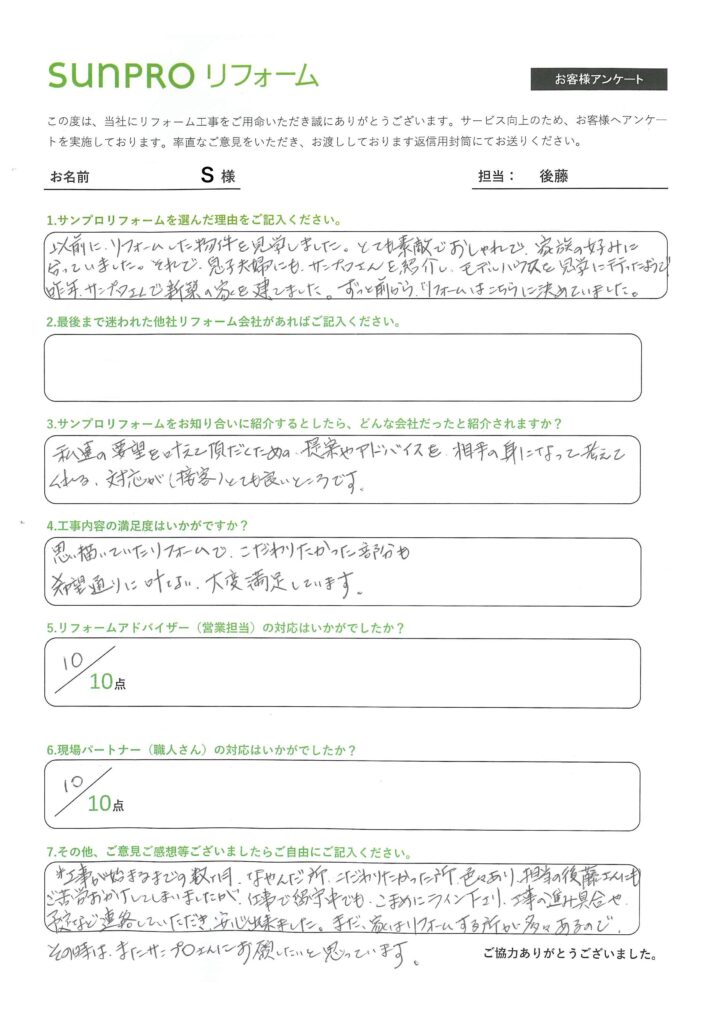 sunpro リフォーム
お客様アンケート
この度は、当社にリフォーム工事をご用命いただき誠にありがとうございます。サービス向上のため、お客様へアンケー
トを実施しております。率直なご意見をいただき、お渡ししております返信用封筒にてお送りください。
お名前 S 様 担当： 後藤
1.サンプロリフォームを選んだ理由をご記入ください。
以前に、リフォームした物件を見学しました。とても素敵でおしゃれで、家族の好みに
合っていました。それで、息子夫婦にも、サンプロさんを紹介し、モデルハウスを見学に行ったようで
昨年、サンプロさんで新築の家を建てました。ずっと前から、リフォームはこちらに決めていました。
2.最後まで迷われた他社リフォーム会社があればご記入ください。
3.サンプロリフォームをお知り合いに紹介するとしたら、どんな会社だったと紹介されますか？
私達の要望を叶えて頂だくための、提案やアドバイスを、相手の身になって考えて
くれる、対応が（接客）とても良いところです。
4.工事内容の満足度はいかがですか？
思い描いていたリフォームで、こだわりたかった部分も
希望通りに叶てもらい、大変満足しています。
5.リフォームアドバイザー（営業担当）の対応はいかがでしたか？
10
10点
6.現場パートナー（職人さん）の対応はいかがでしたか？
10
10点
7.その他、ご意見ご感想等ございましたらご自由にご記入ください。
工事が始まるまでの数ヶ月、なやんだ所、こだわりたかった所、色々あり、担当の後藤さんにも
ご苦労おかけしてしまいましたが、仕事で留守中でも、こまめにライン下さり、工事の進み具合や、
予定など連絡していただき、安心出来ました。まだ、家はリフォームする所が多々あるので、
その時は、またサンプロさんにお願いしたいと思っています。
ご協力ありがとうございました。